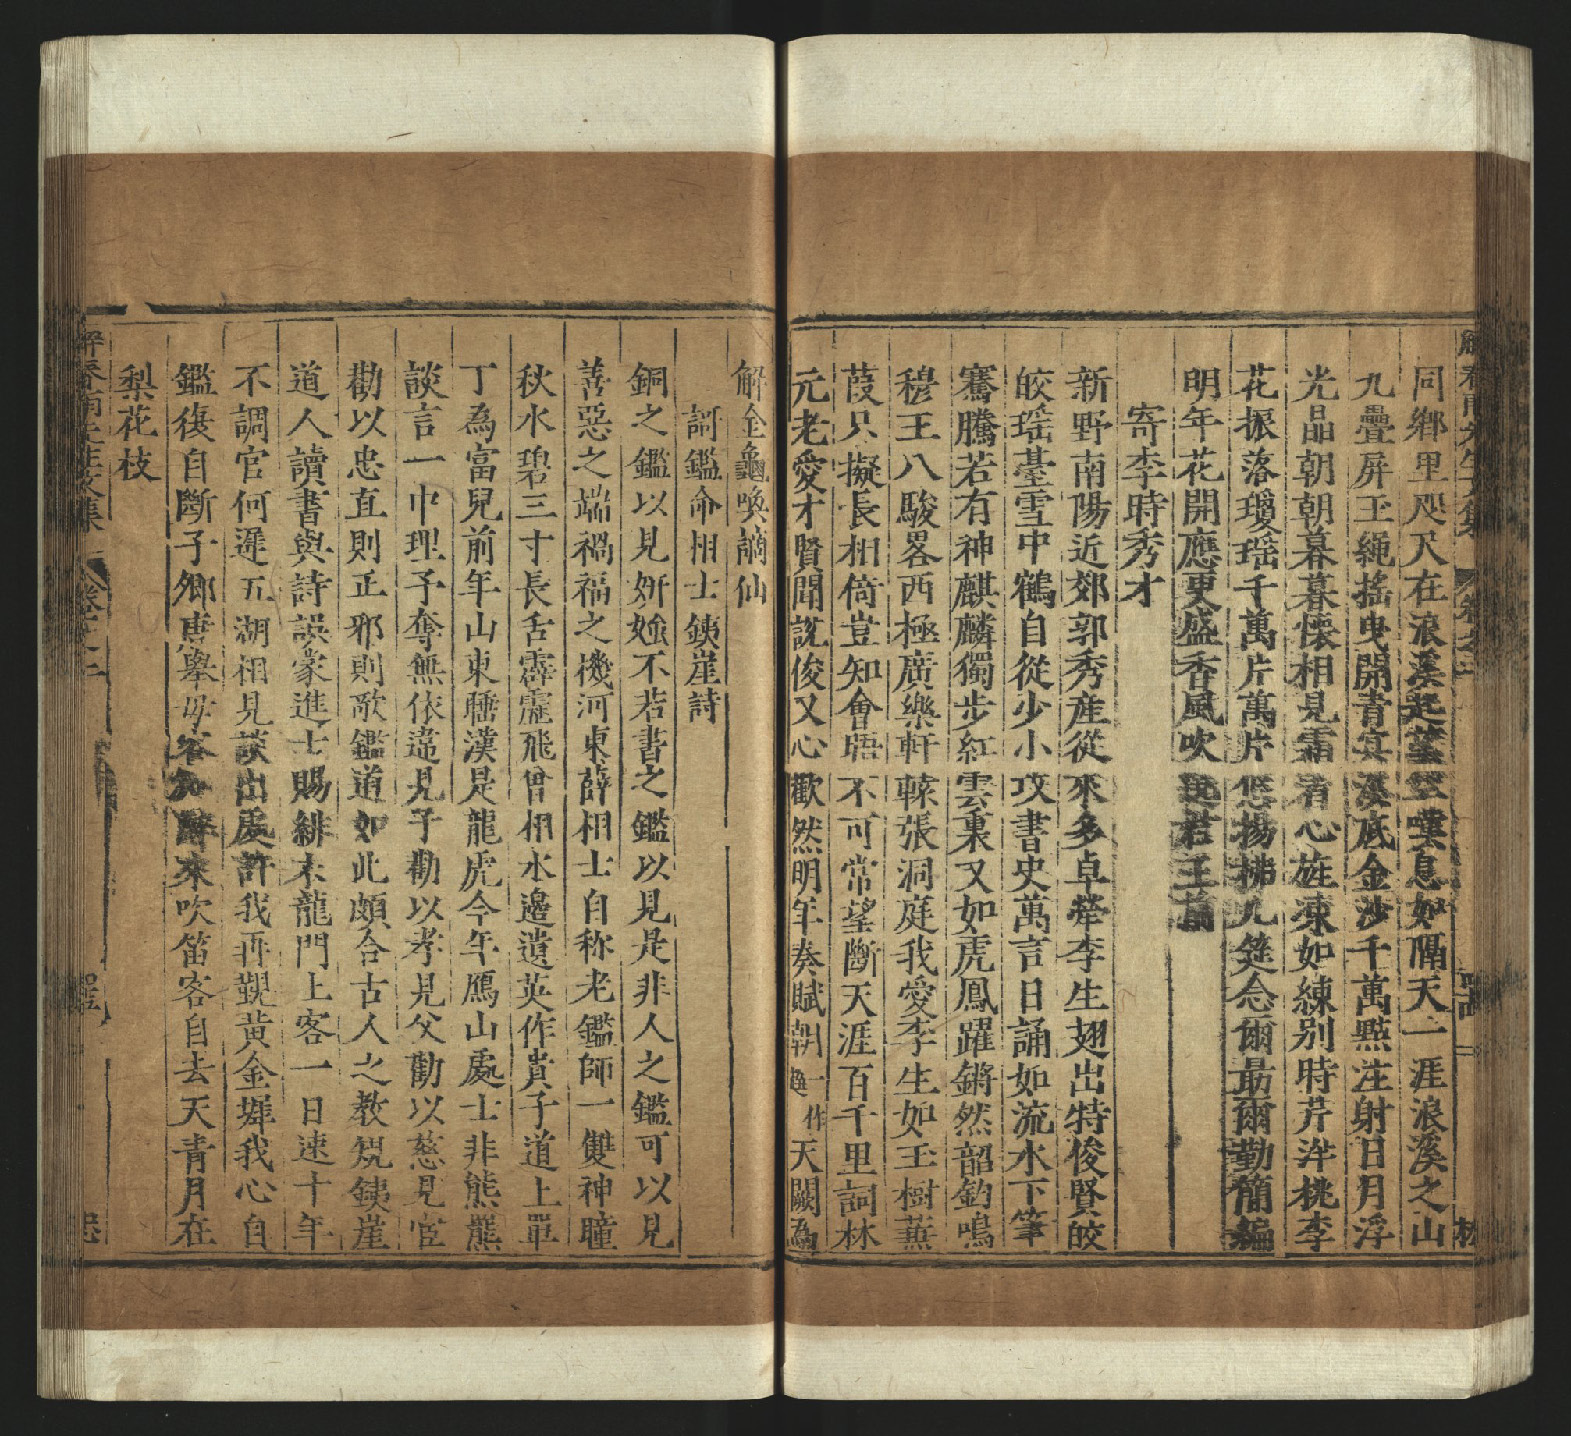 同鄉里咫尺在浪溪起
嘆息如隔天一涯浪溪之山
九疊屏玉繩搖曳開青
溪底金沙千萬點注射日月浮
光晶朝朝暮暮懷相見霜
心旌凍如練别時芹泮桃李
花振落瓊瑶千萬片萬片悠揚拂几筵念爾最爾勤簡編
明年花開應更盛香風吹
寄李時秀才
新野南陽近郊郭秀産從來多卓犖李生翅出特俊賢皎
皎瑶臺雪中鶴自從少小攻書史萬言日誦如流水下筆
騫騰若有神麒麟獨步紅雲裏又如虎鳳躍鏘然韶鈞鳴
穆王八駿畧西極廣樂軒轅張洞庭我愛李生如玉樹蕪
葭只擬長相倚豈知會晤不可常望斷天涯百千里詞林
元老愛才賢聞説俊又心歡然明年奏賦朝一作趨天闕為
解金龜喚謫仙
訶鑑命相士鐵崖詩
銅之鑑以見妍媸不若書之鑑以見是非人之鑑可以見
善惡之端禍福之機河東薛相士自称老鑑師一雙神瞳
秋水碧三寸長舌霹靂飛曾相水邊遺英作貴子道上單
丁為富兒前年山東騷漢是龍虎今年鴈山處士非熊羆
談言一中理予奪無依違見子勸以孝見父勸以慈見官
勸以忠直則正邪則歌鑑道如此頗合古人之教況鐵崖
道人讀書與詩誤蒙進士賜緋木龍門上客一日速十年
不調官何遲五湖相見談出處許我再覲黄金墀我心自
鑑復自斷子鄉唐舉毋客來吹笛客自去天青月在
梨花枝